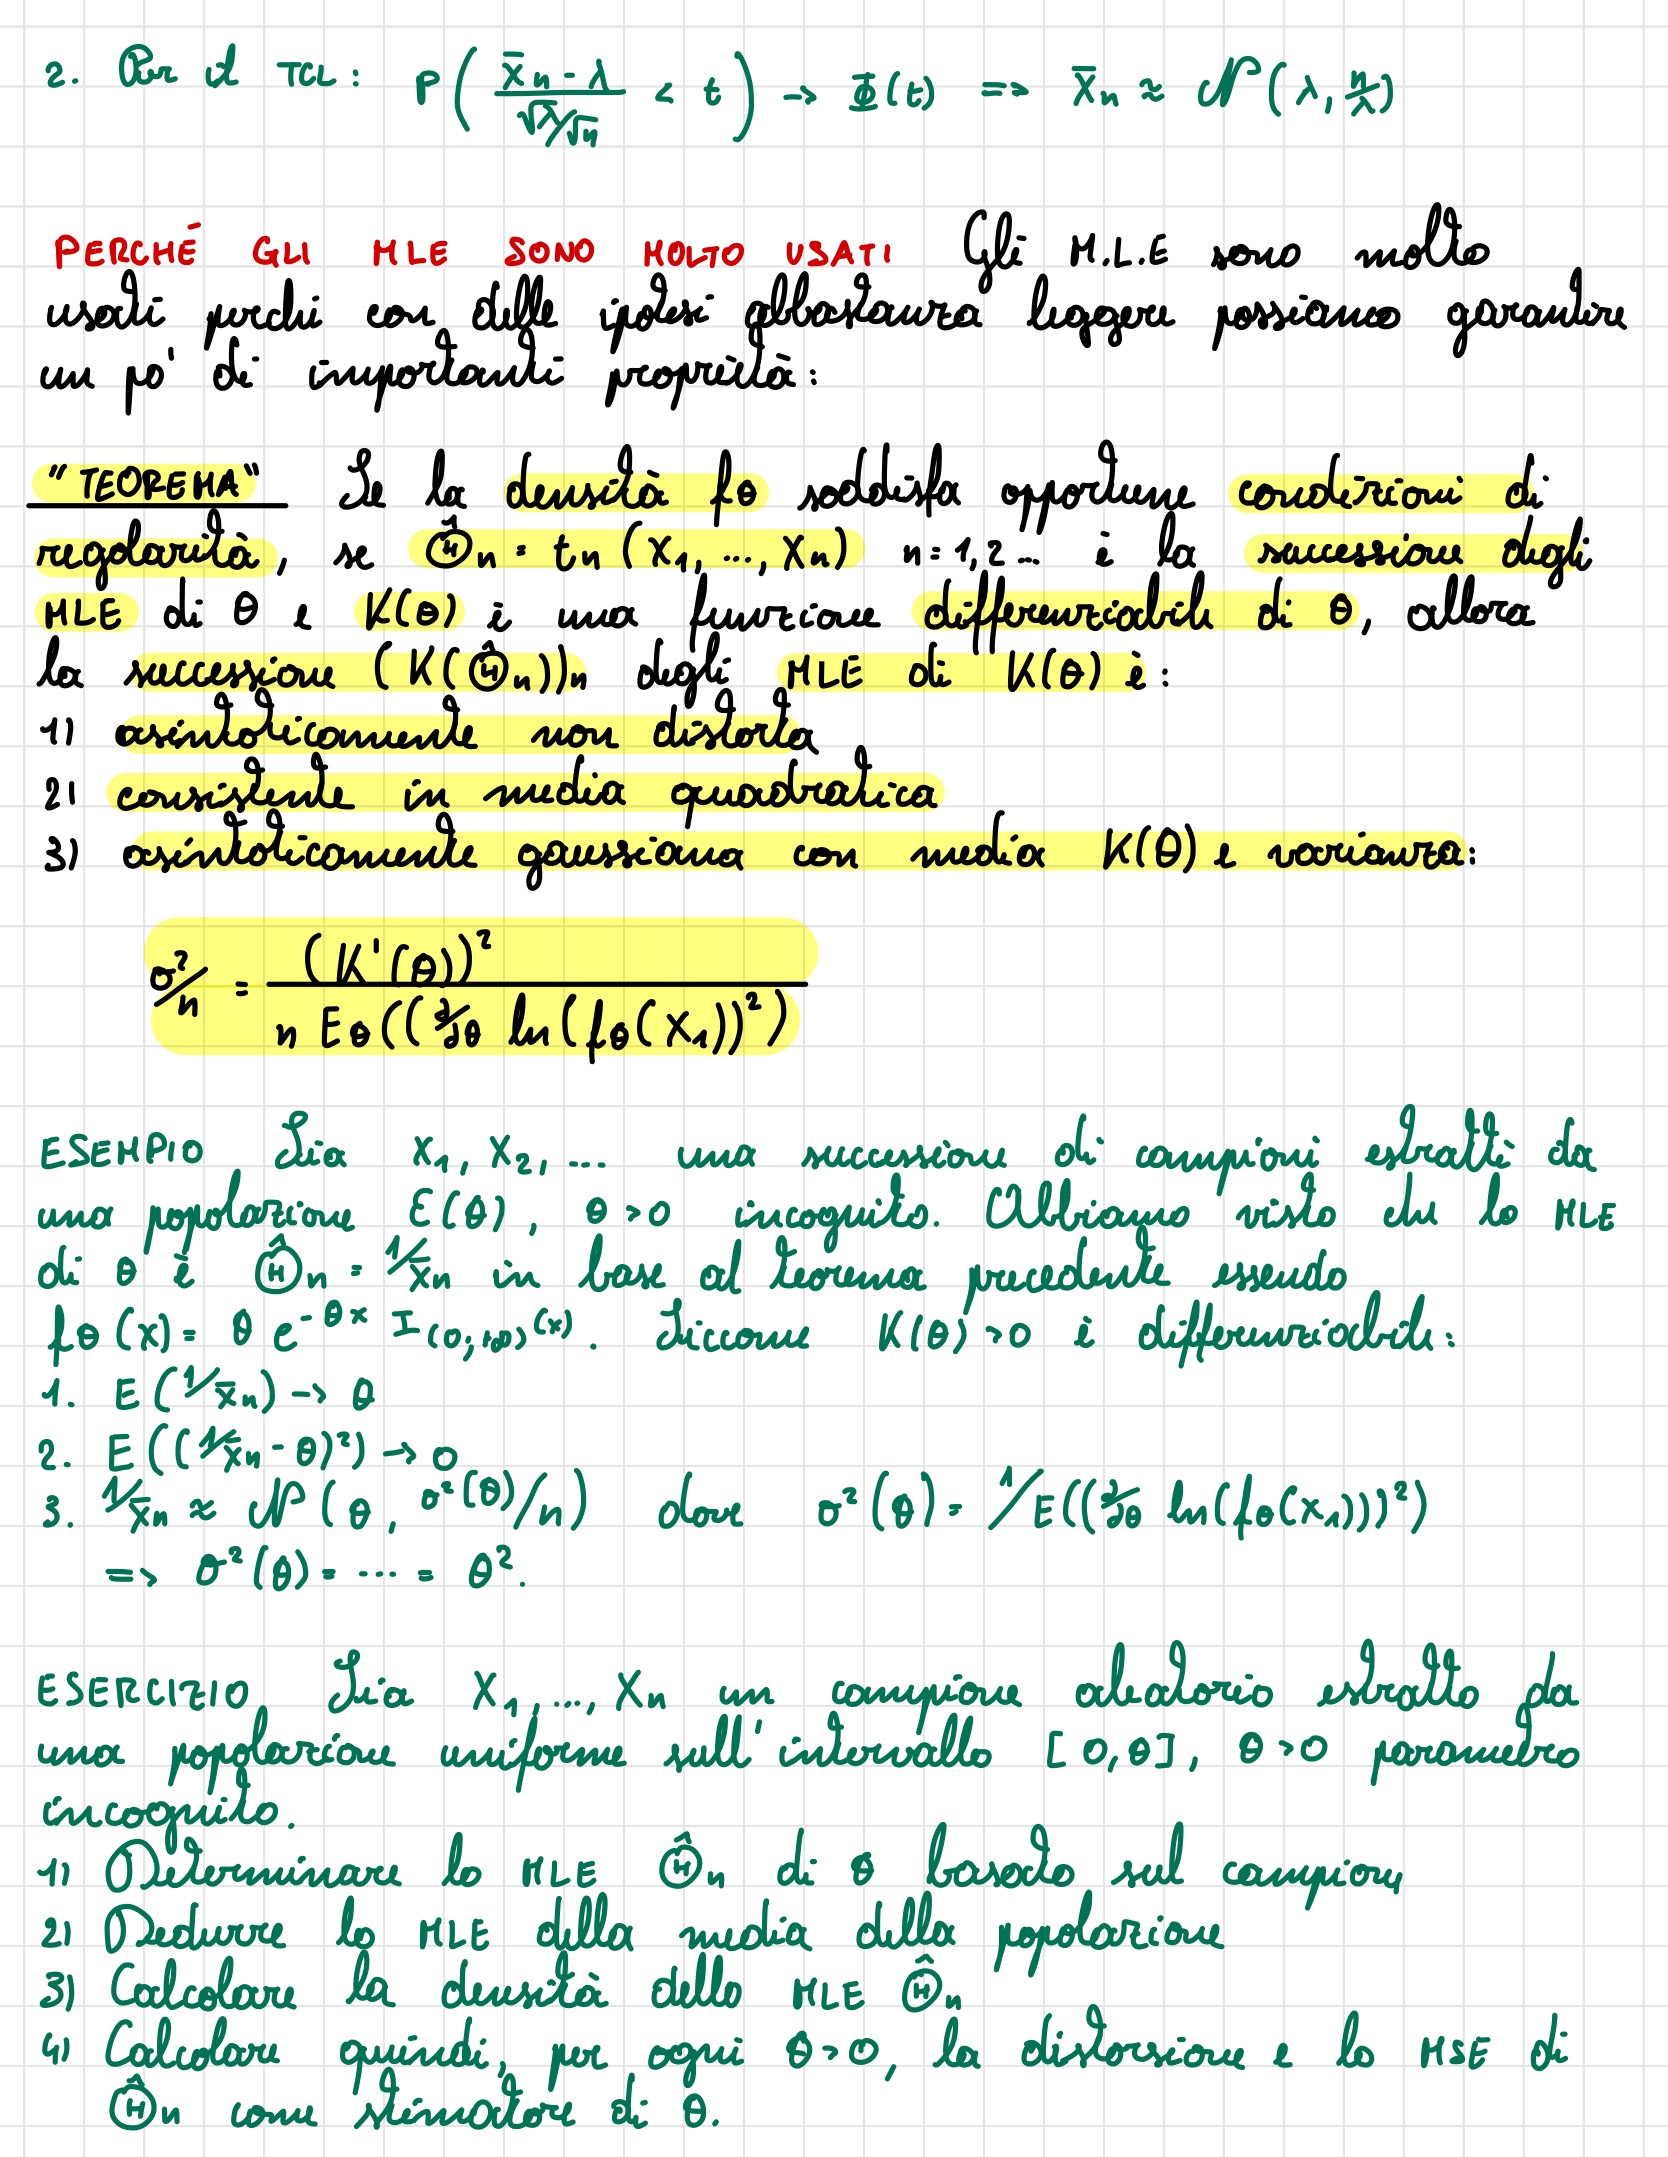 2. Per il TCL: P( (X̄n - λ)/(√λ/√n) < t ) → Φ(t) => X̄n ≈ N(λ, n/λ)
PERCHÉ GLI MLE SONO MOLTO USATI Gli M.L.E sono molto
usati perché con delle ipotesi abbastanza leggere possiamo garantire
un po' di importanti proprietà:
"TEOREMA" Se la densità fθ soddisfa opportune condizioni di
regolarità, se Θ̂n = tn (X1, ..., Xn) n=1,2... è la successione degli
MLE di θ e K(θ) è una funzione differenziabile di θ, allora
la successione (K(Θ̂n))n degli MLE di K(θ) è:
1) asintoticamente non distorta
2) consistente in media quadratica
3) asintoticamente gaussiana con media K(θ) e varianza:
σ²/n = (K'(θ))² / n Eθ((∂/∂θ ln(fθ(X1))²)
ESEMPIO Sia X1, X2, ... una successione di campioni estratti da
una popolazione E(θ), θ>0 incognito. Abbiamo visto che lo MLE
di θ è Θ̂n = 1/X̄n in base al teorema precedente essendo
fθ(x) = θ e^-θx I(0;+∞)(x). Siccome K(θ)>0 è differenziabile:
1. E(1/X̄n) → θ
2. E((1/X̄n - θ)²) → 0
3. 1/X̄n ≈ N(θ, σ²(θ)/n) dove σ²(θ) = 1/E((∂/∂θ ln(fθ(X1)))²)
=> σ²(θ) = ... = θ².
ESERCIZIO Sia X1, ..., Xn un campione aleatorio estratto da
una popolazione uniforme sull'intervallo [0,θ], θ>0 parametro
incognito.
1) Determinare lo MLE Θ̂n di θ basato sul campione
2) Dedurre lo MLE della media della popolazione
3) Calcolare la densità dello MLE Θ̂n
4) Calcolare quindi, per ogni θ>0, la distorsione e lo MSE di
Θ̂n come stimatore di θ.